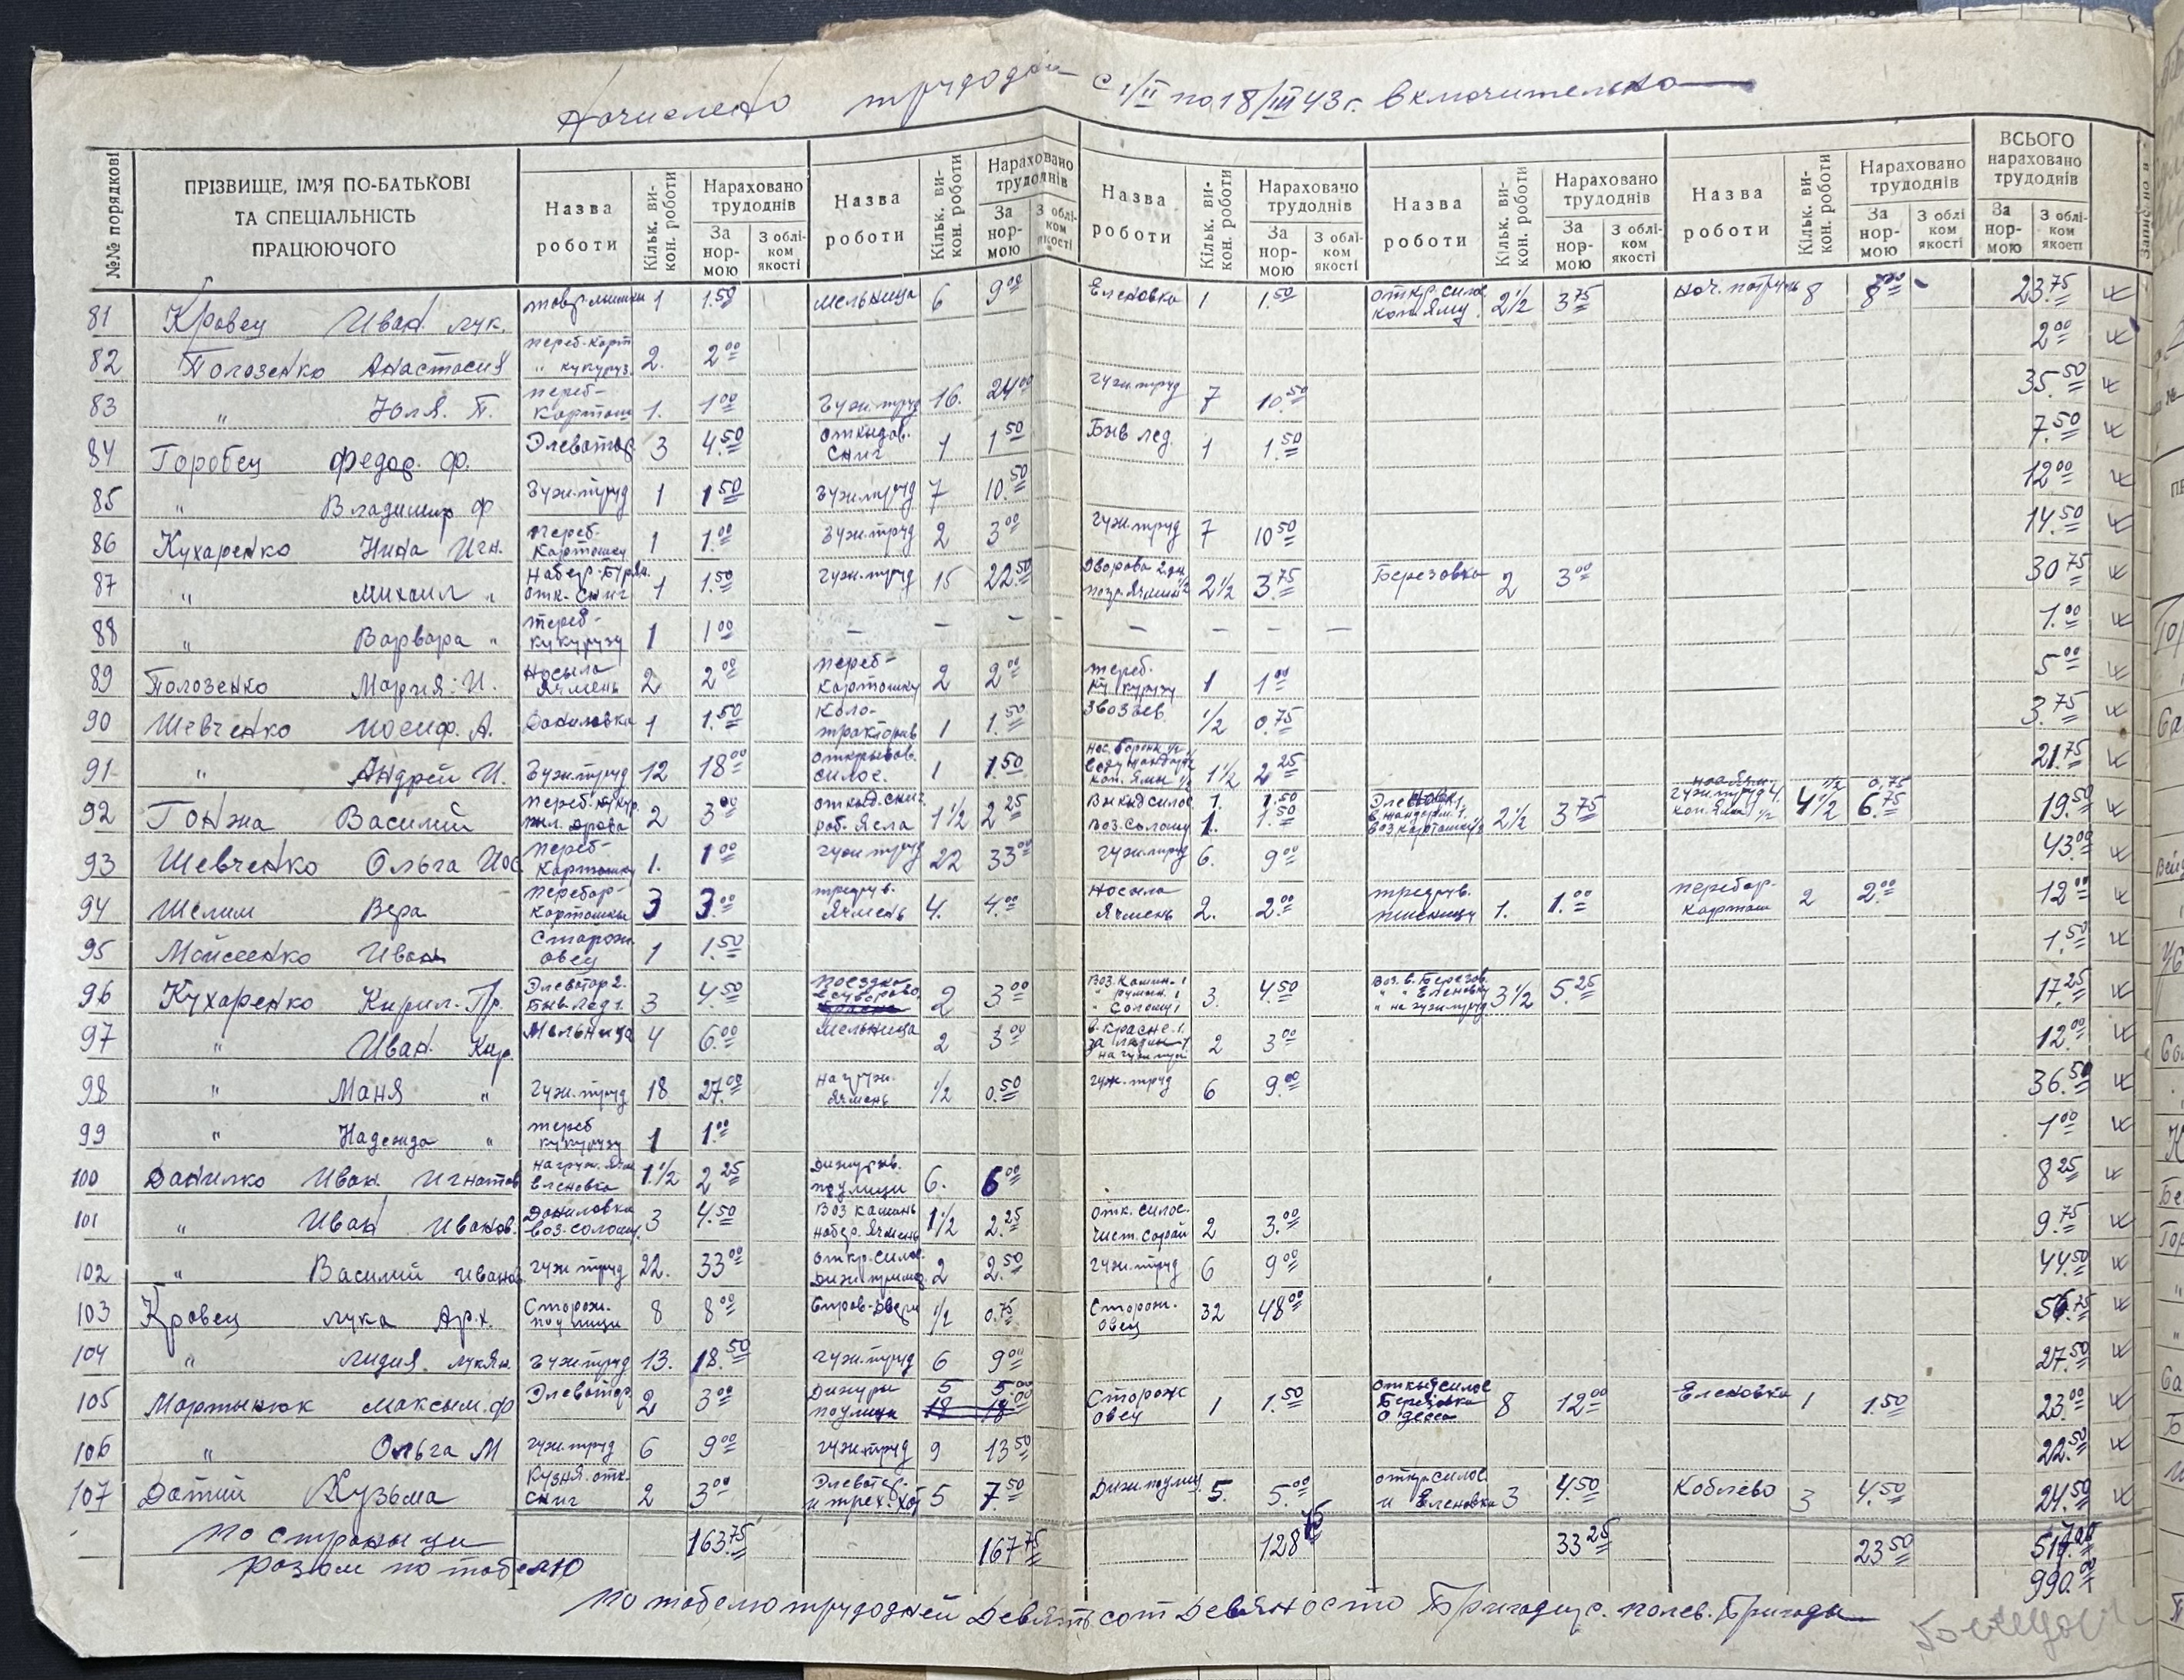 Начислено трудодн с 1/II по 18/III 43 г. включительно
№№ порядкові
ПРІЗВИЩЕ, ІМ'Я ПО-БАТЬКОВІ ТА СПЕЦІАЛЬНІСТЬ ПРАЦЮЮЧОГО
Назва роботи Кільк. викон. роботи Нараховано трудоднів За нормою З обліком якості
Назва роботи Кільк. викон. роботи Нараховано трудоднів За нормою З обліком якості
Назва роботи Кільк. викон. роботи Нараховано трудоднів За нормою З обліком якості
Назва роботи Кільк. викон. роботи Нараховано трудоднів За нормою З обліком якості
Назва роботи Кільк. викон. роботи Нараховано трудоднів За нормою З облі ком якості
ВСЬОГО нараховано трудоднів За нормою З обліком якості
81 Кравец Иван Лук. 1 1.50 мельница 6 9.00 Еленовка 1 1.50 откр. силос коп. яму 2 1/2 3.75 8 23.75
82 Полозенко Анастасия переб. карт " кукуруз. 2. 2.00 2.00
83 " Юля. П. переб- картош 1. 1.00 гуж. труд 16. 24.00 гуж. труд 7 10.50 35.50
84 Горобец Федор. Ф. Элеватор 3 4.50 откидов. сниг 1 1.50 Быв лед. 1 1.50 7.50
85 " Владимир Ф гуж. труд 1 1.50 гуж. труд 7 10.50 12.00
86 Кухаренко Нина Игн. переб- картошку 1 1.00 гуж. труд 2 3.00 гуж. труд 7 10.50 14.50
87 " Михаил " отк. сниг 1 1.50 гуж. труд 15 22.50 2 1/2 3.75 Березовка 2 3.00 30.75
88 " Варвара " переб- кукурузу 1 1.00 – – – – – – – 1.00
89 Полозенко Мария. И. Носила ячмень 2 2.00 переб- картошку 2 2.00 переб. кукурузу 1 1.00 5.00
90 Шевченко Иосиф. А. Даниловка 1 1.50 Коло- тракторив 1 1.50 1/2 0.75 3.75
91 " Андрей И. гуж. труд 12 18.00 открывов. силос. 1 1.50 коп. ямы 1/2 1 1/2 2.25 21.75
92 Гонжа Василий переб. кукур. дрова 2 3.00 откид. сниг. роб. ясла 1 1/2 2.25 Выкид силос 1. 1.50 воз. солому 1. 1.50 воз. картошку 2 1/2 3.75 гуж. труд 4. коп. яма 1/2 1/2 0.75 4 1/2 6.75 19.50
93 Шевченко Ольга Иос переб- картошку 1. 1.00 гуж труд 22 33.00 гуж. труд 6. 9.00 43.00
94 Шелим Вера перебор- картошки 3 3.00 ячмень 4. 4.00 Носила ячмень 2. 2.00 пшеницу 1. 1.00 перебор- картош 2 2.00 12.00
95 Мойсеенко Иван Сторож. овец 1 1.50 1.50
96 Кухаренко Кирил. Гр. Элеватор 2. Быв. лед 1. 3 4.50 поездка 2 3.00 воз. камин. 1 " солому 1 3. 4.50 воз. в. Березов. " " Еленовку " на гуж. труд 3 1/2 5.25 17.25
97 " Иван Кир. Мельница 4 6.00 Мельница 2 3.00 в. Красне. 1. на гуж. труд 2 3.00 12.00
98 " Маня " гуж. труд 18 27.00 нагруж. ячмень 1/2 0.50 гуж. труд 6 9.00 36.50
99 " Надежда " переб кукурузу 1 1.00 1.00
100 Данилко Иван Игнатов нагруж. ячм Еленовка 1 1/2 2.25 Дижурив. по улици 6. 6.00 8.25
101 " Иван Иванов. Даниловка воз. солому 3 4.50 Воз камень ячмень 1 1/2 2.25 отк. силос. чист. сарай 2 3.00 9.75
102 " Василий Иванов гуж труд 22. 33.00 откр. силос. 2 2.50 гуж. труд 6 9.00 44.50
103 Кравец Лука Арх. Сторож. по улици 8 8.00 1/2 0.75 Сторож. овец 32 48.00 56.75
104 " Лидия. Лукян. гуж. труд 13. 18.50 гуж. труд 6 9.00 27.50
105 Мартынюк Максым. Ф Элеватор 2 3.00 Дижури по улици 5 5.00 18 18.00 Сторож овец 1 1.50 открыт силос Березовка Одесса 8 12.00 Еленовка 1 1.50 23.00
106 " Ольга М гуж. труд 6 9.00 гуж. труд 9 13.50 22.50
107 Датий Кузьма Кузня. отк. сниг 2 3.00 Элеватор. 5 7.50 Дижи по улиц. 5. 5.00 откр. силос и Еленовка 3 4.50 Коблево 3 4.50 24.50
по страныци 163.75 167.75 128.75 33.25 23.50
разом по табелю 990.00
По табелю трудодней Девятьсот Девяносто Бригадир с. полев. Бригады